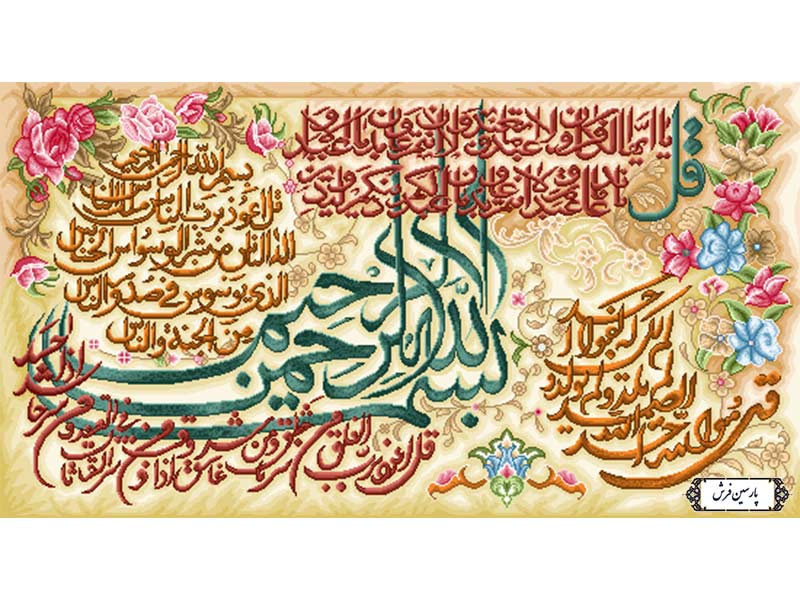 قل يا ايها الكافرون لا اعبد ما تعبدون ولا انتم عابدون ما اعبد
بسم الله الرحمن الرحيم
قل اعوذ برب الناس ملك الناس
اله الناس من شر الوسواس الخناس
الذي يوسوس في صدور الناس
من الجنة والناس
بسم الله الرحمن الرحيم
قل هو الله احد الله الصمد لم يلد ولم يولد ولم يكن له كفوا احد
قل اعوذ برب الفلق من شر ما خلق ومن شر غاسق اذا وقب ومن شر النفاثات في العقد ومن شر حاسد اذا حسد
پارسین فرش